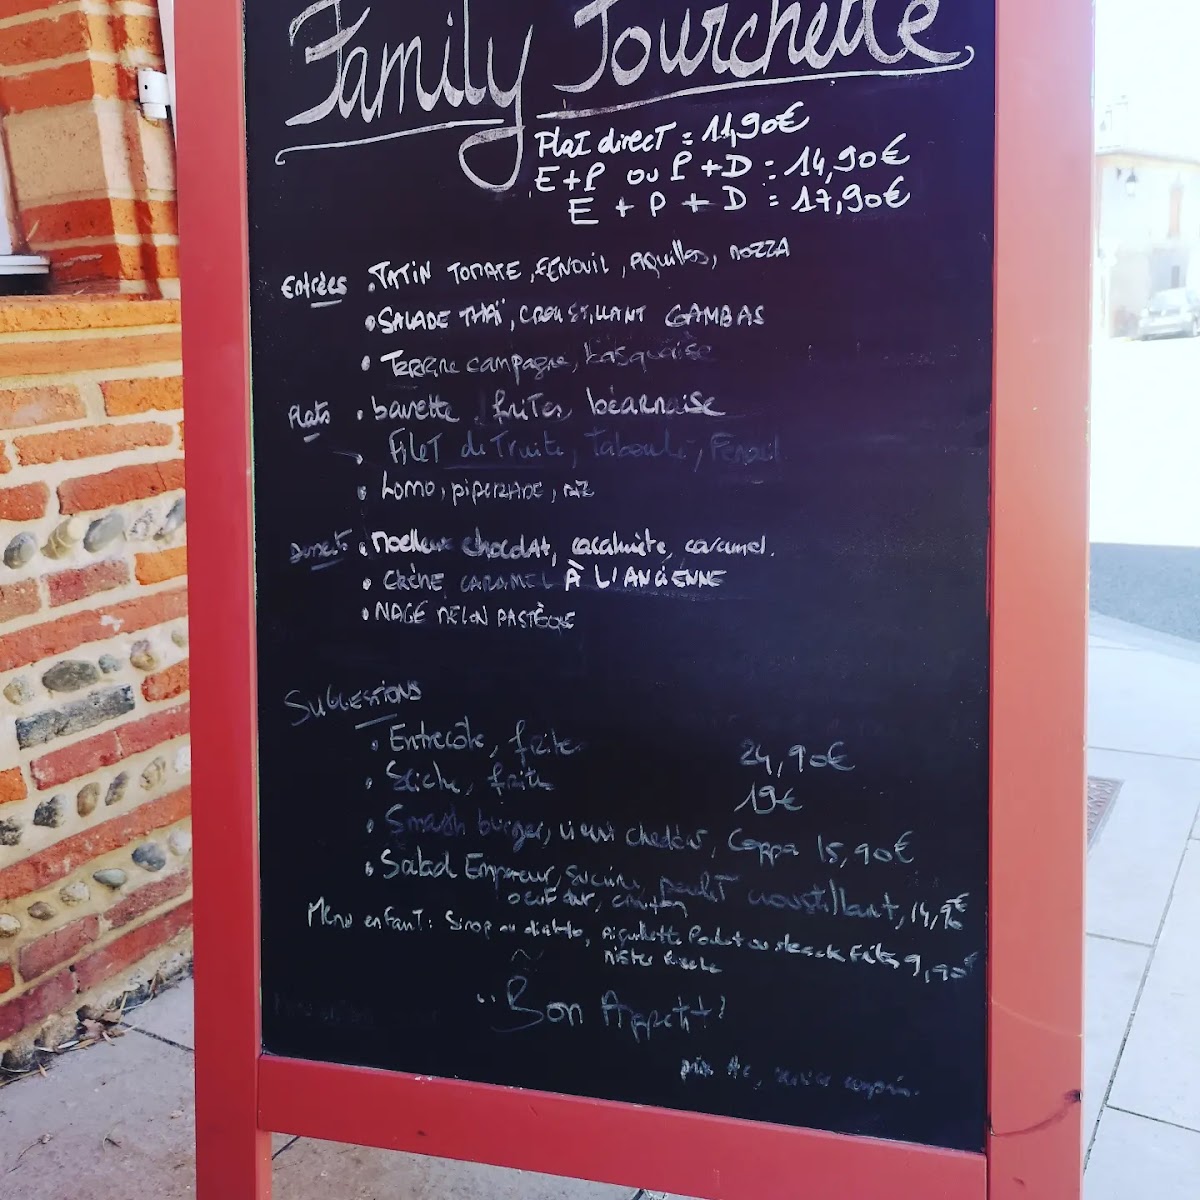 Family Fourchette
Plat direct = 11,90€
E+P ou P+D = 14,90€
E + P + D = 17,90€
Entrées • TATIN TOMATE, FENOUIL, PIQUILLOS, MOZZA
• SALADE THAÏ, CROUSTILLANT GAMBAS
• Terrine campagne, basquaise
Plats • bavette frites, béarnaise
• FILET de Truite, Taboulé, Fenouil
• Lomo, piperade, riz
Dessert • Moelleux chocolat, cacahuète, caramel.
• CRÈME CARAMEL À L'ANCIENNE
• NAGE MELON PASTÈQUE
SUGGESTIONS
• Entrecôte, frites 24,90€
• Seiche, frite 19€
• Smash burger, chedar, Coppa 15,90€
• Salad Empereur, sucrine, poulet croustillant, 14,90€
oeuf dur, crouton
Menu enfant: Sirop ou diablo, Aiguillette Poulet ou steack Frites 9,90€
Mister
~
"Bon Appetit"
prix ttc, service compris.